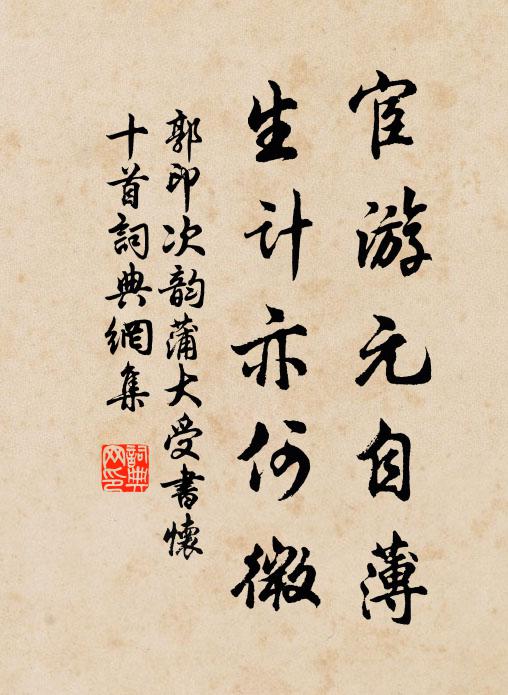 宦游元自薄
生计亦何微
郭印次韵蒲大受書懷
十首詞典網集
詞典
网印